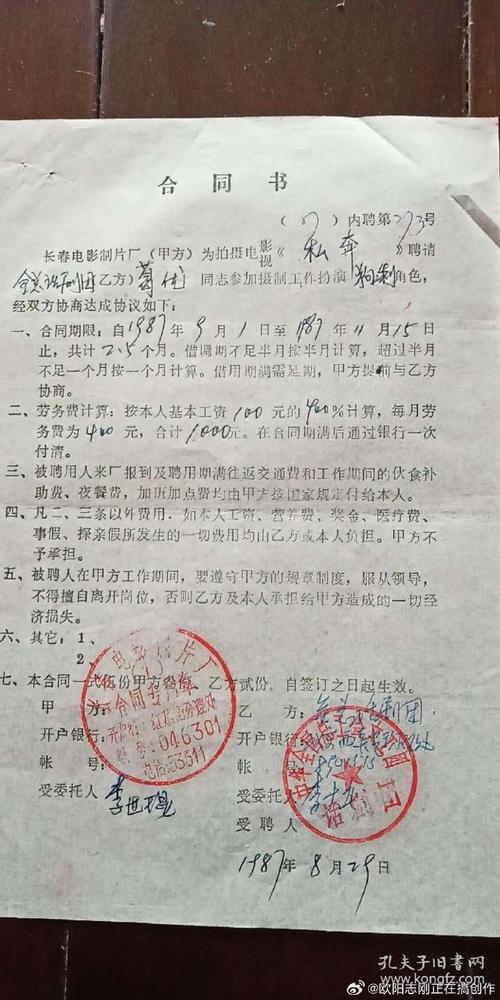 合同书
(87)内聘第273号
长春电影制片厂(甲方)为拍摄电影视《私奔》聘请
全总话剧团乙方)葛优同志参加摄制工作扮演狗剩角色,
经双方协商达成协议如下:
一、合同期限:自1987年9月1日至1987年11月15日
止,共计2.5个月。借调期不足半月按半月计算,超过半月
不足一个月按一个月计算。借用期满需延期,甲方提前与乙方
协商。
二、劳务费计算:按本人基本工资100元的400%计算,每月劳
务费为400元,合计1000元。在合同期满后通过银行一次
付清。
三、被聘用人来厂报到及聘用期满往返交通费和工作期间的伙食补
助费、夜餐费,加班加点费均由甲方按国家规定付给本人。
四、凡二、三条以外费用,如本人工资、营养费、奖金、医疗费、
事假、探亲假所发生的一切费用均由乙方或本人负担。甲方不
予承担。
五、被聘人在甲方工作期间,要遵守甲方的规章制度,服从领导,
不得擅自离开岗位,否则乙方及本人承担给甲方造成的一切经
济损失。
六、其它:1、
2、
七、本合同一式伍份甲方叁份,乙方贰份,自签订之日起生效。
甲方:
乙方:全总话剧团
开户银行:
开户银行:
帐号:
帐号:
受委托人
受委托人
受聘人
长春电影制片厂
合同专用章
开户行:红旗街办理处
帐号:046301
电话:53311
中华全国总工会文工团
话剧团
1987年8月29日
孔夫子旧书网
@欧阳志刚正在搞创作